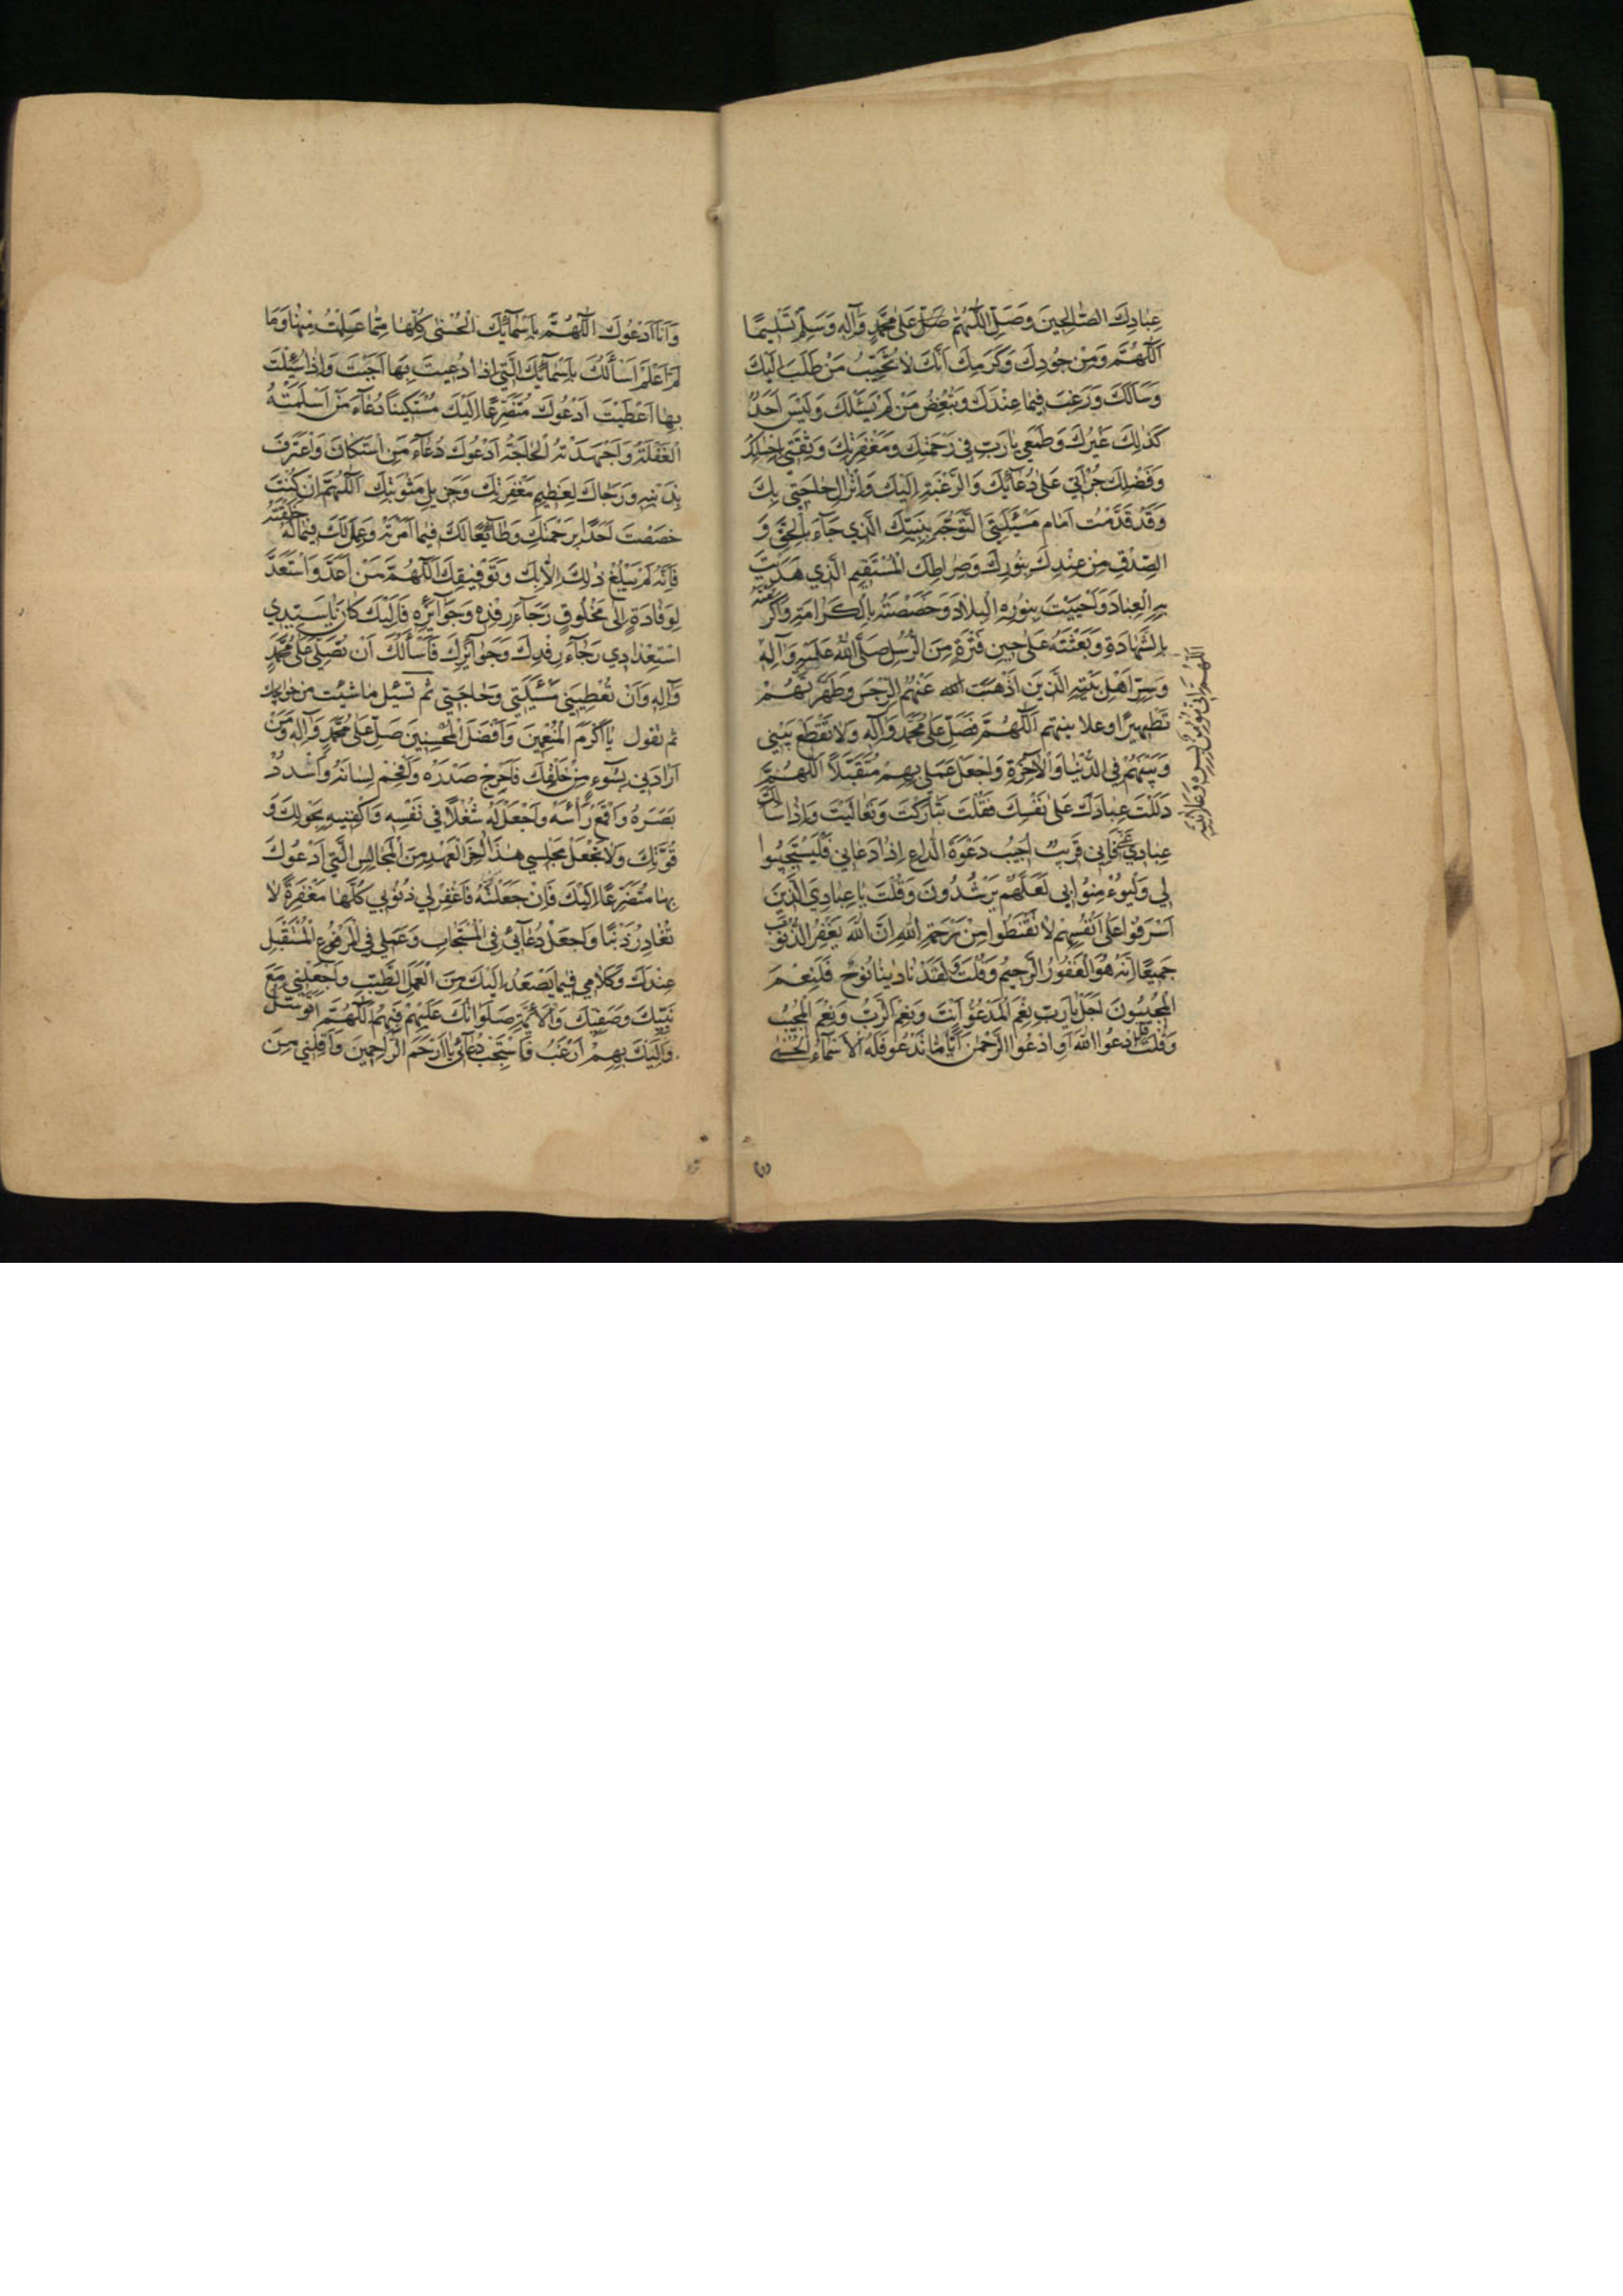 عِبَادِكَ الصَّالِحِينَ وَصَلِّ اللَّهُمَّ صَلِّ عَلَى مُحَمَّدٍ وَآلِهِ وَسَلِّمْ تَسْلِيمًا
اَللَّهُمَّ وَمِنْ جُودِكَ وَكَرَمِكَ اَنَّكَ لَا تُخَيِّبُ مَنْ طَلَبَ اِلَيْكَ
وَسَأَلَكَ وَرَغِبَ فِيمَا عِنْدَكَ وَتُبْغِضُ مَنْ لَمْ يَسْئَلْكَ وَلَيْسَ اَحَدٌ
كَذَلِكَ غَيْرُكَ وَطَمَعِي يَا رَبِّ فِي رَحْمَتِكَ وَمَغْفِرَتِكَ وَثِقَتِي بِاِحْسَانِكَ
وَفَضْلِكَ جُرْأَتِي عَلَى دُعَائِكَ وَالرَّغْبَةِ اِلَيْكَ وَاِنْزَالِ حَاجَتِي بِكَ
وَقَدْ قَدَّمْتُ اَمَامَ مَسْئَلَتِي التَّوَجُّهَ بِنَبِيِّكَ الَّذِي جَآءَ بِالْحَقِّ وَ
الصِّدْقِ مِنْ عِنْدِكَ بِنُورِكَ وَصِرَاطِكَ الْمُسْتَقِيمِ الَّذِي هَدَيْتَ
بِهِ الْعِبَادَ وَاَحْيَيْتَ بِنُورِهِ الْبِلَادَ وَخَصَصْتَهُ بِالْكَرَامَةِ وَاَكْرَمْتَهُ
بِالشَّهَادَةِ وَبَعَثْتَهُ عَلَى حِينِ فَتْرَةٍ مِنَ الرُّسُلِ صَلَّى اللهُ عَلَيْهِ وَآلِهِ
وَسِرِّ اَهْلِ بَيْتِهِ الَّذِينَ اَذْهَبْتَ عَنْهُمُ الرِّجْسَ وَطَهَّرْتَهُمْ
تَطْهِيرًا وعلانيتهم اَللَّهُمَّ فَصَلِّ عَلَى مُحَمَّدٍ وَآلِهِ وَلَا تَقْطَعْ بَيْنِي
وَبَيْنَهُمْ فِي الدُّنْيَا وَالْآخِرَةِ وَاجْعَلْ عَمَلِي بِهِمْ مُتَقَبَّلًا اَللَّهُمَّ
دَلَلْتَ عِبَادَكَ عَلَى نَفْسِكَ فَقُلْتَ تَبَارَكْتَ وَتَعَالَيْتَ وَاِذَا سَأَلَكَ
عِبَادِي عَنِّي فَاِنِّي قَرِيبٌ اُجِيبُ دَعْوَةَ الدَّاعِ اِذَا دَعَانِي فَلْيَسْتَجِيبُوا
لِي وَلْيُؤْمِنُوا بِي لَعَلَّهُمْ يَرْشُدُونَ وَقُلْتَ يَا عِبَادِيَ الَّذِينَ
اَسْرَفُوا عَلَى اَنْفُسِهِمْ لَا تَقْنَطُوا مِنْ رَحْمَةِ اللهِ اِنَّ اللهَ يَغْفِرُ الذُّنُوبَ
جَمِيعًا اِنَّهُ هُوَ الْغَفُورُ الرَّحِيمُ وَقُلْتَ وَلَقَدْ نَادَيْنَا نُوحٌ فَلَنِعْمَ
الْمُجِيبُونَ اَجَلْ يَا رَبِّ نِعْمَ الْمَدْعُوُّ اَنْتَ وَنِعْمَ الرَّبُّ وَنِعْمَ الْمُجِيبُ
وَقُلْتَ قُلِ ادْعُوا اللهَ اَوِ ادْعُوا الرَّحْمٰنَ اَيًّا مَا تَدْعُوا فَلَهُ الْاَسْمَآءُ الْحُسْنٰى
وَاَنَا اَدْعُوكَ اَللَّهُمَّ بِاَسْمَآئِكَ الْحُسْنٰى كُلِّهَا مَا عَلِمْتُ مِنْهَا وَمَا
لَمْ اَعْلَمْ اَسْأَلُكَ بِاَسْمَآئِكَ الَّتِي اِذَا دُعِيتَ بِهَا اَجَبْتَ وَاِذَا سُئِلْتَ
بِهَا اَعْطَيْتَ اَدْعُوكَ مُتَضَرِّعًا اِلَيْكَ مُسْتَكِينًا دُعَآءَ مَنْ اَسْلَمَتْهُ
الْغَفْلَةُ وَاَجْهَدَتْهُ الْحَاجَةُ اَدْعُوكَ دُعَآءَ مَنِ اسْتَكَانَ وَاعْتَرَفَ
بِذَنْبِهِ وَرَجَاكَ لِعَظِيمِ مَغْفِرَتِكَ وَجَزِيلِ مَثُوبَتِكَ اَللَّهُمَّ اِنْ كُنْتَ
خَصَصْتَ اَحَدًا بِرَحْمَتِكَ وَطَآئِعًا لَكَ فِيمَا اَمَرْتَهُ وَعَمِلَ لَكَ فِيمَا لَهُ خَلَقْتَهُ
فَاِنَّهُ لَمْ يَبْلُغْ ذٰلِكَ اِلَّا بِكَ وَتَوْفِيقِكَ اَللَّهُمَّ مَنْ اَعَدَّ وَاسْتَعَدَّ
لِوِفَادَةٍ اِلَى مَخْلُوقٍ رَجَآءَ رِفْدِهِ وَجَوَآئِزِهِ فَاِلَيْكَ كَانَ يَا سَيِّدِي
اسْتِعْدَادِي رَجَآءَ رِفْدِكَ وَجَوَآئِزِكَ فَاَسْأَلُكَ اَنْ تُصَلِّيَ عَلَى مُحَمَّدٍ
وَآلِهِ وَاَنْ تُعْطِيَنِي مَسْئَلَتِي وَحَاجَتِي ثم تسئل ما شئت من حوائجك
ثم تقول يَا اَكْرَمَ الْمُنْعِمِينَ وَاَفْضَلَ الْمُحْسِنِينَ صَلِّ عَلَى مُحَمَّدٍ وَآلِهِ وَمَنْ
اَرَادَنِي بِسُوءٍ مِنْ خَلْقِكَ فَاَحْرِجْ صَدْرَهُ وَاَفْحِمْ لِسَانَهُ وَاسْدُدْ
بَصَرَهُ وَاقْمَعْ رَأْسَهُ وَاجْعَلْ لَهُ شُغْلًا فِي نَفْسِهِ وَاكْفِنِيهِ بِحَوْلِكَ وَ
قُوَّتِكَ وَلَا تَجْعَلْ مَجْلِسِي هٰذَا آخِرَ الْعَهْدِ مِنَ الْمَجَالِسِ الَّتِي اَدْعُوكَ
بِهَا مُتَضَرِّعًا اِلَيْكَ فَاِنْ جَعَلْتَهُ فَاغْفِرْ لِي ذُنُوبِي كُلَّهَا مَغْفِرَةً لَا
تُغَادِرُ ذَنْبًا وَاجْعَلْ دُعَآئِي فِي الْمُسْتَجَابِ وَعَمَلِي فِي الْمَرْفُوعِ الْمُتَقَبَّلِ
عِنْدَكَ وَكَلَامِي فِيمَا يَصْعَدُ اِلَيْكَ مِنَ الْعَمَلِ الطَّيِّبِ وَاجْعَلْنِي مَعَ
نَبِيِّكَ وَصَفِيِّكَ وَالْاَئِمَّةِ صَلَوَاتُكَ عَلَيْهِمْ فَبِهِمُ اللَّهُمَّ اَتَوَسَّلُ
وَاِلَيْكَ بِهِمْ اَرْغَبُ فَاسْتَجِبْ دُعَآئِي يَا اَرْحَمَ الرَّاحِمِينَ وَاَقِلْنِي مِنَ